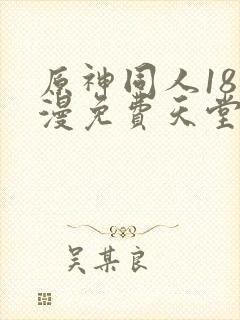 原神同人18
漫免費天堂
吴某良